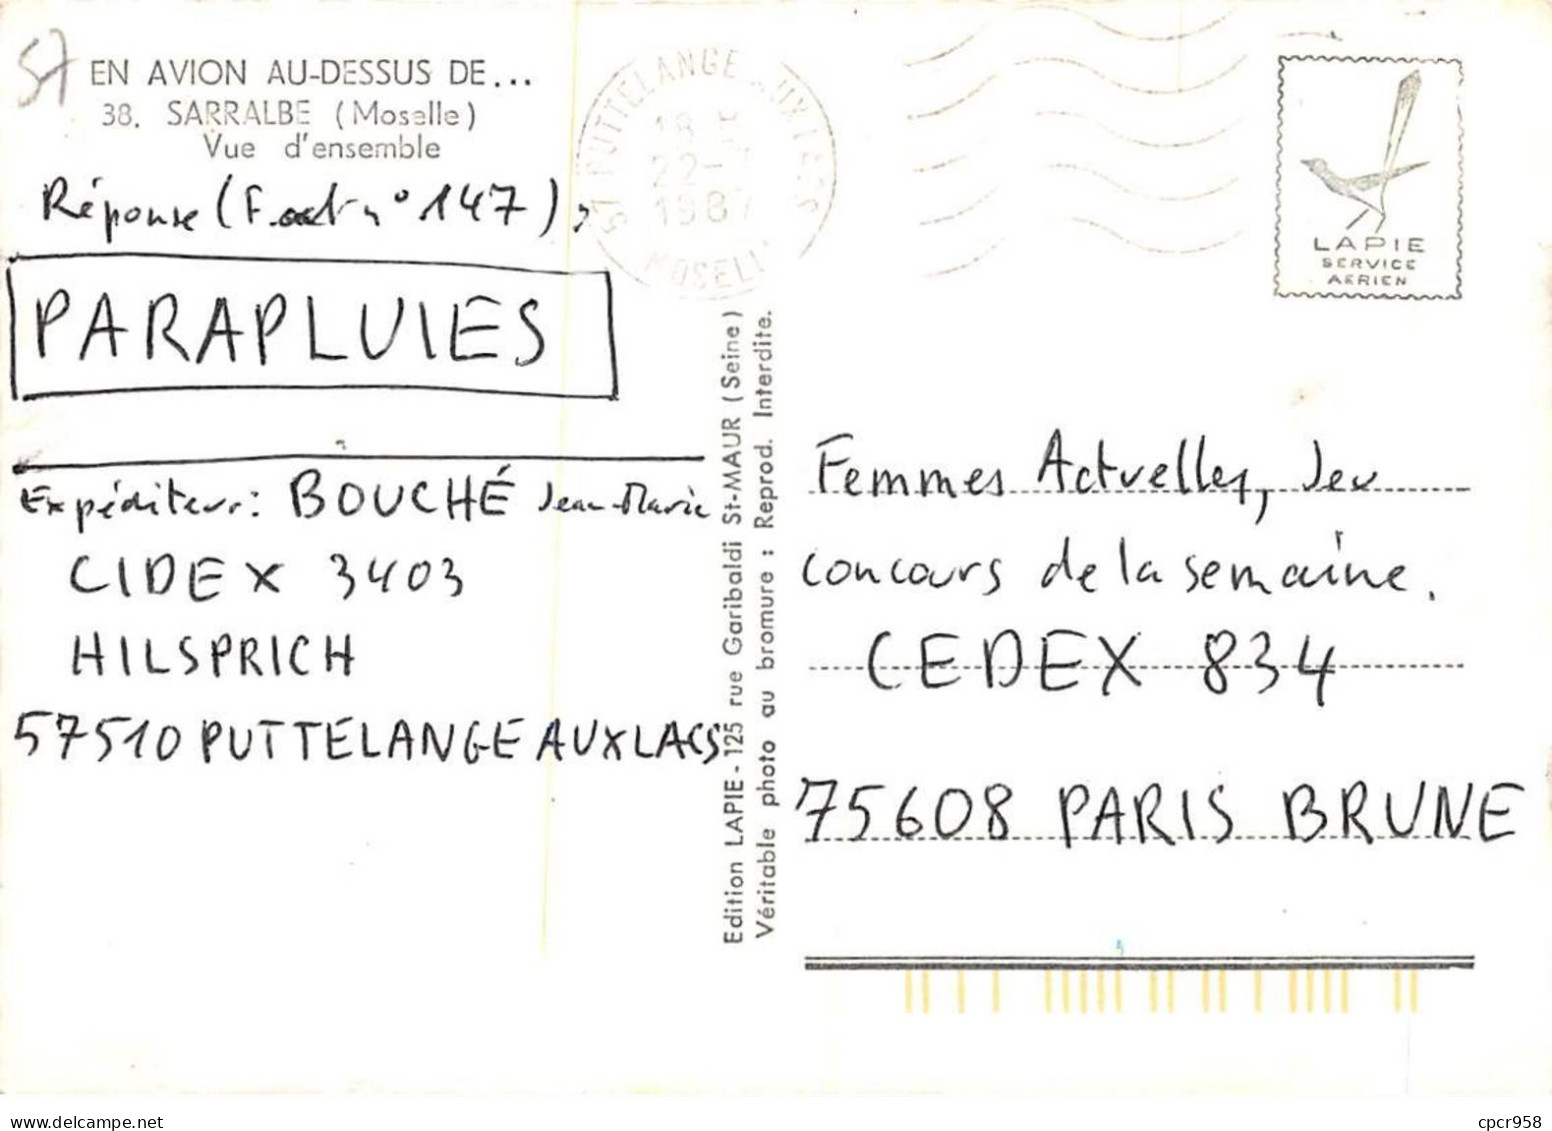 57
EN AVION AU-DESSUS DE...
38. SARRALBE (Moselle)
Vue d'ensemble
Réponse (F n° 147) :
PARAPLUIES
Expéditeur: BOUCHÉ Jean-Marie
CIDEX 3403
HILSPRICH
57510 PUTTELANGE AUX LACS
57 PUTTELANGE AUX LACS
18
22-
1987
MOSELLE
LAPIE
SERVICE
AERIEN
Edition LAPIE - 125 rue Garibaldi St-MAUR (Seine)
Véritable photo au bromure : Reprod. Interdite.
Femmes Actuelles, Jeu
concours de la semaine.
CEDEX 834
75608 PARIS BRUNE
cpcr958